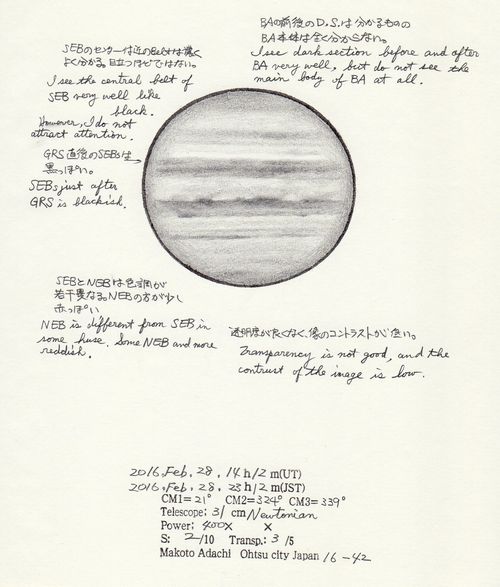 BAの前後のD.S.は分かるものの
BA本体は全く分からない。
I see dark section before and after
BA very well, but do not see the
main body of BA at all.
SEBのセンターは近のBeltは濃く
よく分かる。目立つほどではない。
I see the central belt of
SEB very well like
black.
However, I do not
attract attention.
GRS直後のSEBsは
黒っぽい。
SEBs just after
GRS is blackish.
SEBとNEBは色調が
若干異なる。NEBの方が少し
赤っぽい
NEB is different from SEB in
some huse. Some NEB and more
reddish.
透明度が良くなく、像のコントラストが低い。
Transparency is not good, and the
contrast of the image is low.
2016, Feb, 28, 14 h12 m(UT)
2016, Feb, 28, 23 h12 m(JST)
CM1= 21° CM2= 324° CM3= 339°
Telescope: 31 cm Newtonian
Power: 400X X
S: 2/10 Transp.: 3 /5
Makoto Adachi Ohtsu city Japan 16-42